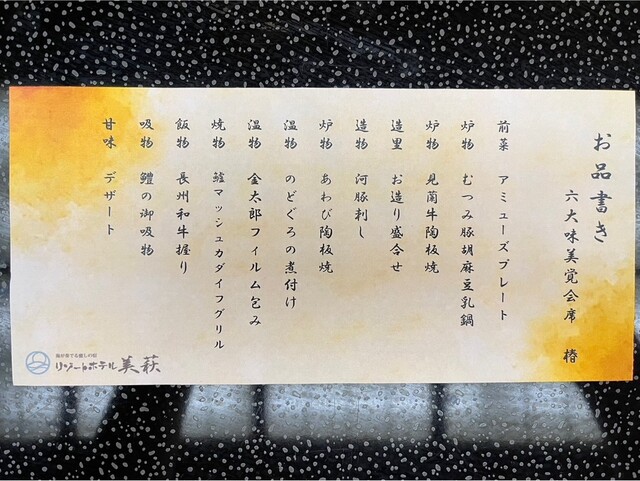 お品書き
六大味美覚会席 椿
前菜 アミューズプレート
炉物 むつみ豚胡麻豆乳鍋
炉物 見蘭牛陶板焼
造里 お造り盛合せ
造物 河豚刺し
炉物 あわび陶板焼
温物 のどぐろの煮付け
温物 金太郎フィルム包み
焼物 鱸マッシュカダイフグリル
飯物 長州和牛握り
吸物 鱧の御吸物
甘味 デザート
海が奏でる癒しの宿
リゾートホテル美萩